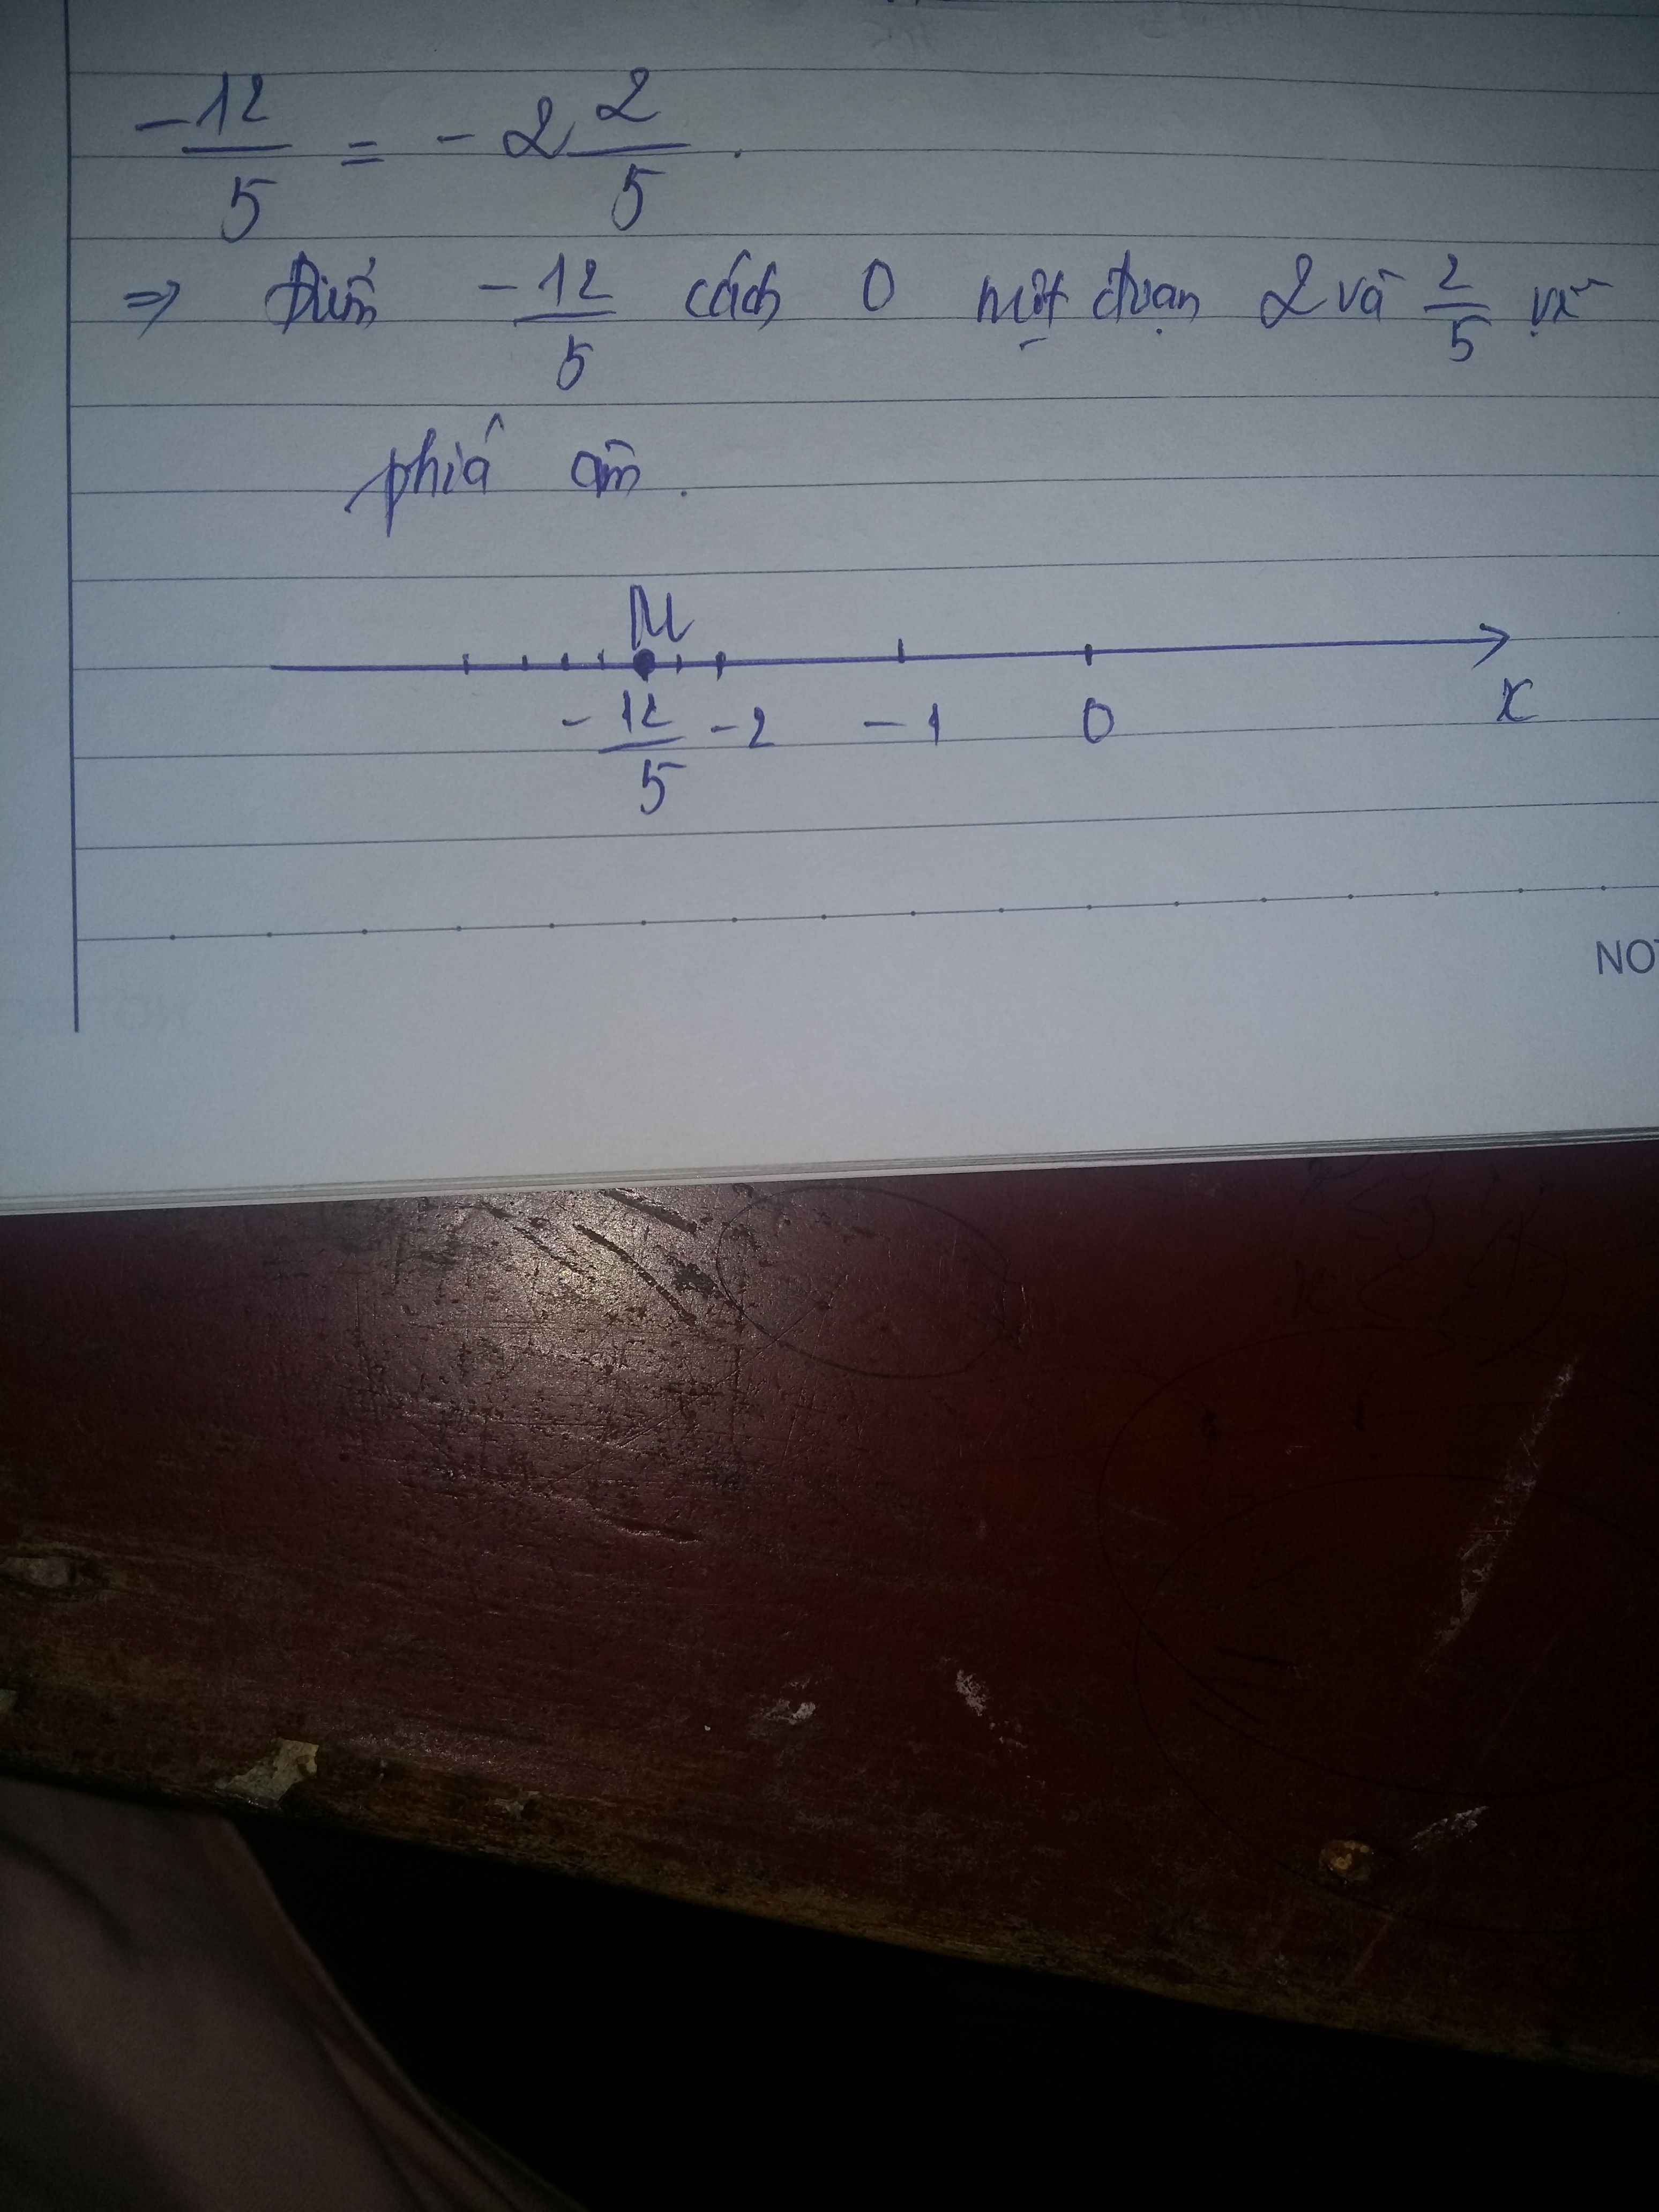 -12/5 = -2 2/5.
⇒ Điểm -12/5 cách 0 một đoạn 2 và 2/5 về
phiá âm.
M
-12/5 -2 -1 0 x
NOT